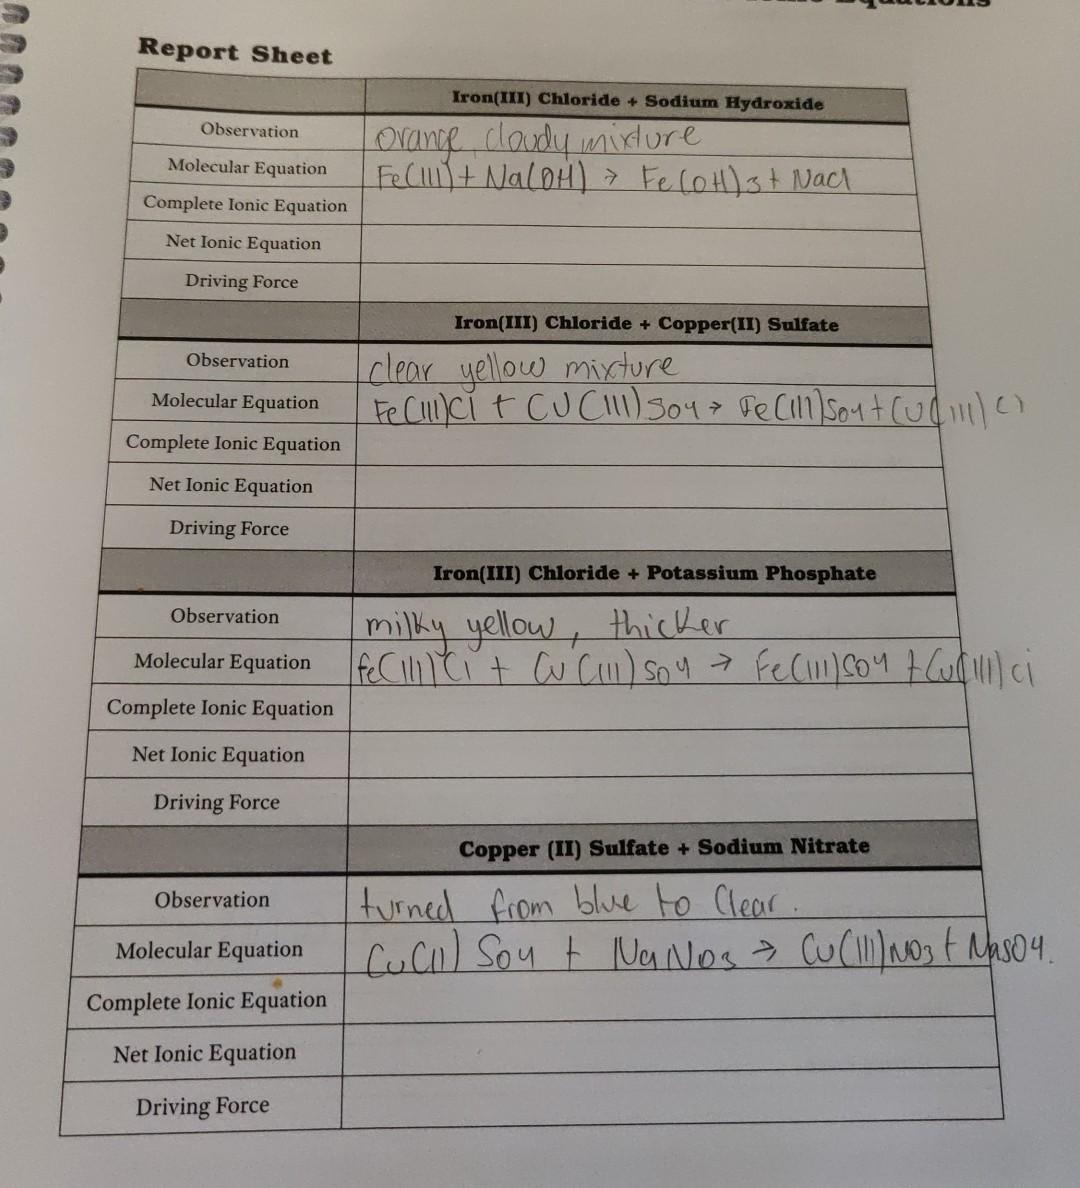 Report Sheet
Iron(III) Chloride + Sodium Hydroxide
Observation orange, cloudy mixture
Molecular Equation Fe(III) + Na(OH) → Fe(OH)3 + Nacl
Complete Ionic Equation
Net Ionic Equation
Driving Force
Iron(III) Chloride + Copper(II) Sulfate
Observation clear yellow mixture
Molecular Equation Fe(III)Cl + CU(III)SO4 → Fe(III)SO4 + CU(III)Cl
Complete Ionic Equation
Net Ionic Equation
Driving Force
Iron(III) Chloride + Potassium Phosphate
Observation milky yellow, thicker
Molecular Equation fe(III)Cl + CU(III)SO4 → Fe(III)SO4 + Cu(III)Cl
Complete Ionic Equation
Net Ionic Equation
Driving Force
Copper (II) Sulfate + Sodium Nitrate
Observation turned from blue to Clear.
Molecular Equation Cu(II) SO4 + NaNO3 → CU(III)NO3 + NaSO4.
Complete Ionic Equation
Net Ionic Equation
Driving Force